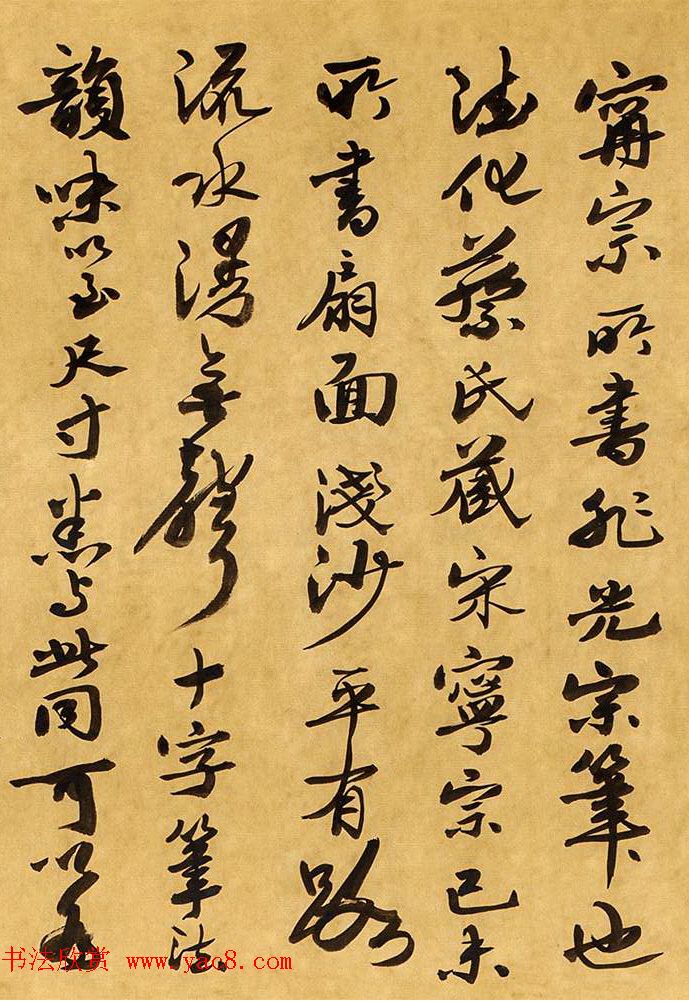 甯宗所書非光宗筆也
德化蔡氏藏宋寧宗己未
所書扇面淺沙平有路
流水漫無聲十字筆法
韻味以至尺寸悉与此同可以為
书法欣赏 www.yac8.com